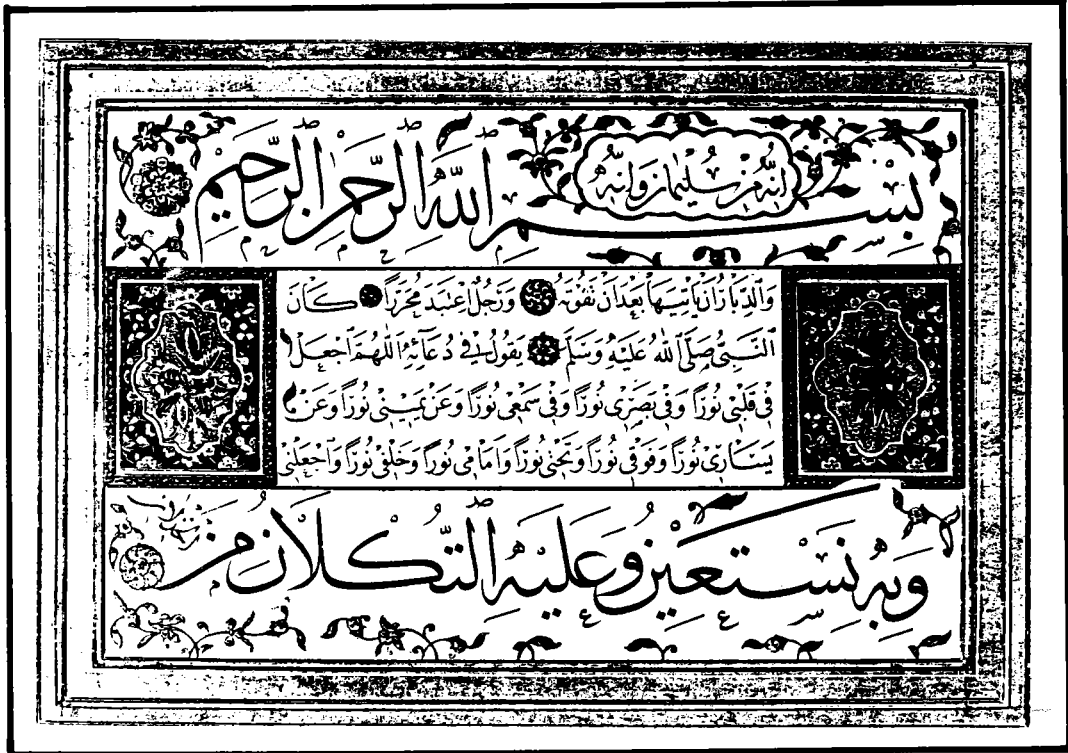 انه من سليمان وانه
بِسْمِ اللّٰهِ الرَّحْمٰنِ الرَّحِيمِ
وَالدِّبَارُ اَنْ يَأْتِيَهَا بَعْدَ اَنْ تَفُوتَهُ وَرَجُلٌ اِعْتَبَدَ مُحَرَّرًا كَانَ
النَّبِيُّ صَلَّى اللهُ عَلَيْهِ وَسَلَّمَ يَقُولُ فِي دُعَائِهِ اَللّٰهُمَّ اجْعَلْ
فِي قَلْبِي نُورًا وَفِي بَصَرِي نُورًا وَفِي سَمْعِي نُورًا وَعَنْ يَمِينِي نُورًا وَعَنْ
يَسَارِي نُورًا وَفَوْقِي نُورًا وَتَحْتِي نُورًا وَاَمَامِي نُورًا وَخَلْفِي نُورًا وَاجْعَلْنِي
وَبِهِ نَسْتَعِينُ وَعَلَيْهِ التُّكْلَانُ مِنْ